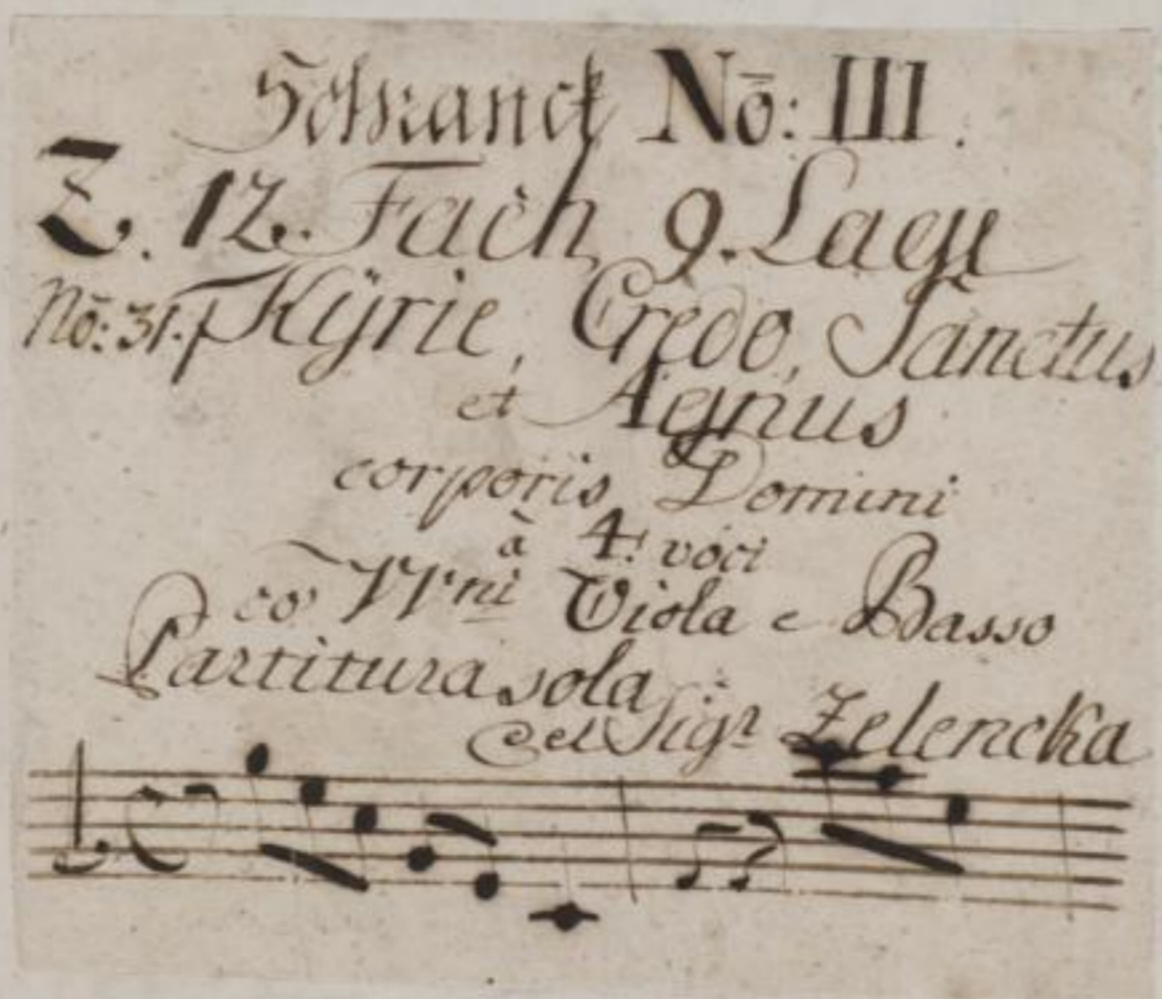 Schranck Nō: III.
Z. 12. Fach 9. Lage
Nō: 31. Kÿrie, Credo, Sanctus
et Agnus
corporis Domini
à 4. voci
co VVni Viola e Basso
Partitura sola
del Sigr Zelencka